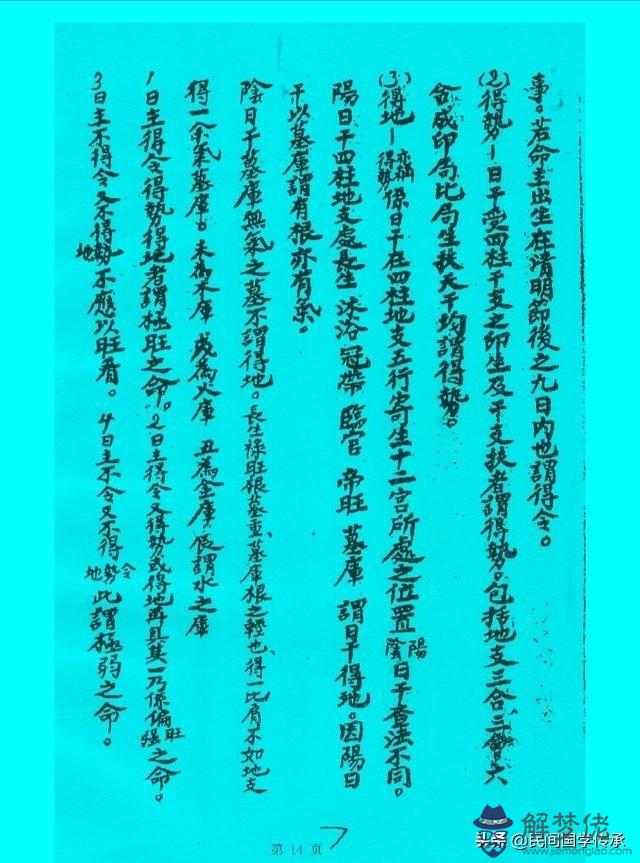 事。若命主出生在清明節後之九日內也謂得令。
(2)得勢—日干受四柱干支之印生及干支扶者謂得勢。包括地支三合三會六
合。成印局比局生扶天干均謂得勢。
(3)得地—亦稱得勢係日干在四柱地支五行寄生十二宮所處之位置陰陽日干查法不同。
陽日干四柱地支處長生 沐浴 冠帶 臨官 帝旺 墓庫 謂日干得地。因陽日
干以墓庫謂有根亦有氣。
陰日干墓庫無氣之墓不謂得地。長生祿旺根墓重、墓庫根之輕也、得一比肩不如地支
得一余氣墓庫。未為木庫 戌為火庫 丑為金庫 辰謂水之庫
1日主得令得勢得地者謂極旺之命。2日主得令又得勢或得地再具其一乃係偏旺强之命。
3日主不得令又不得勢地不應以旺看。4日主不令又不得令勢地此謂極弱之命。
第 14 页
7
解梦佬
www.jiemenglao.com
头条 @民间国学传承